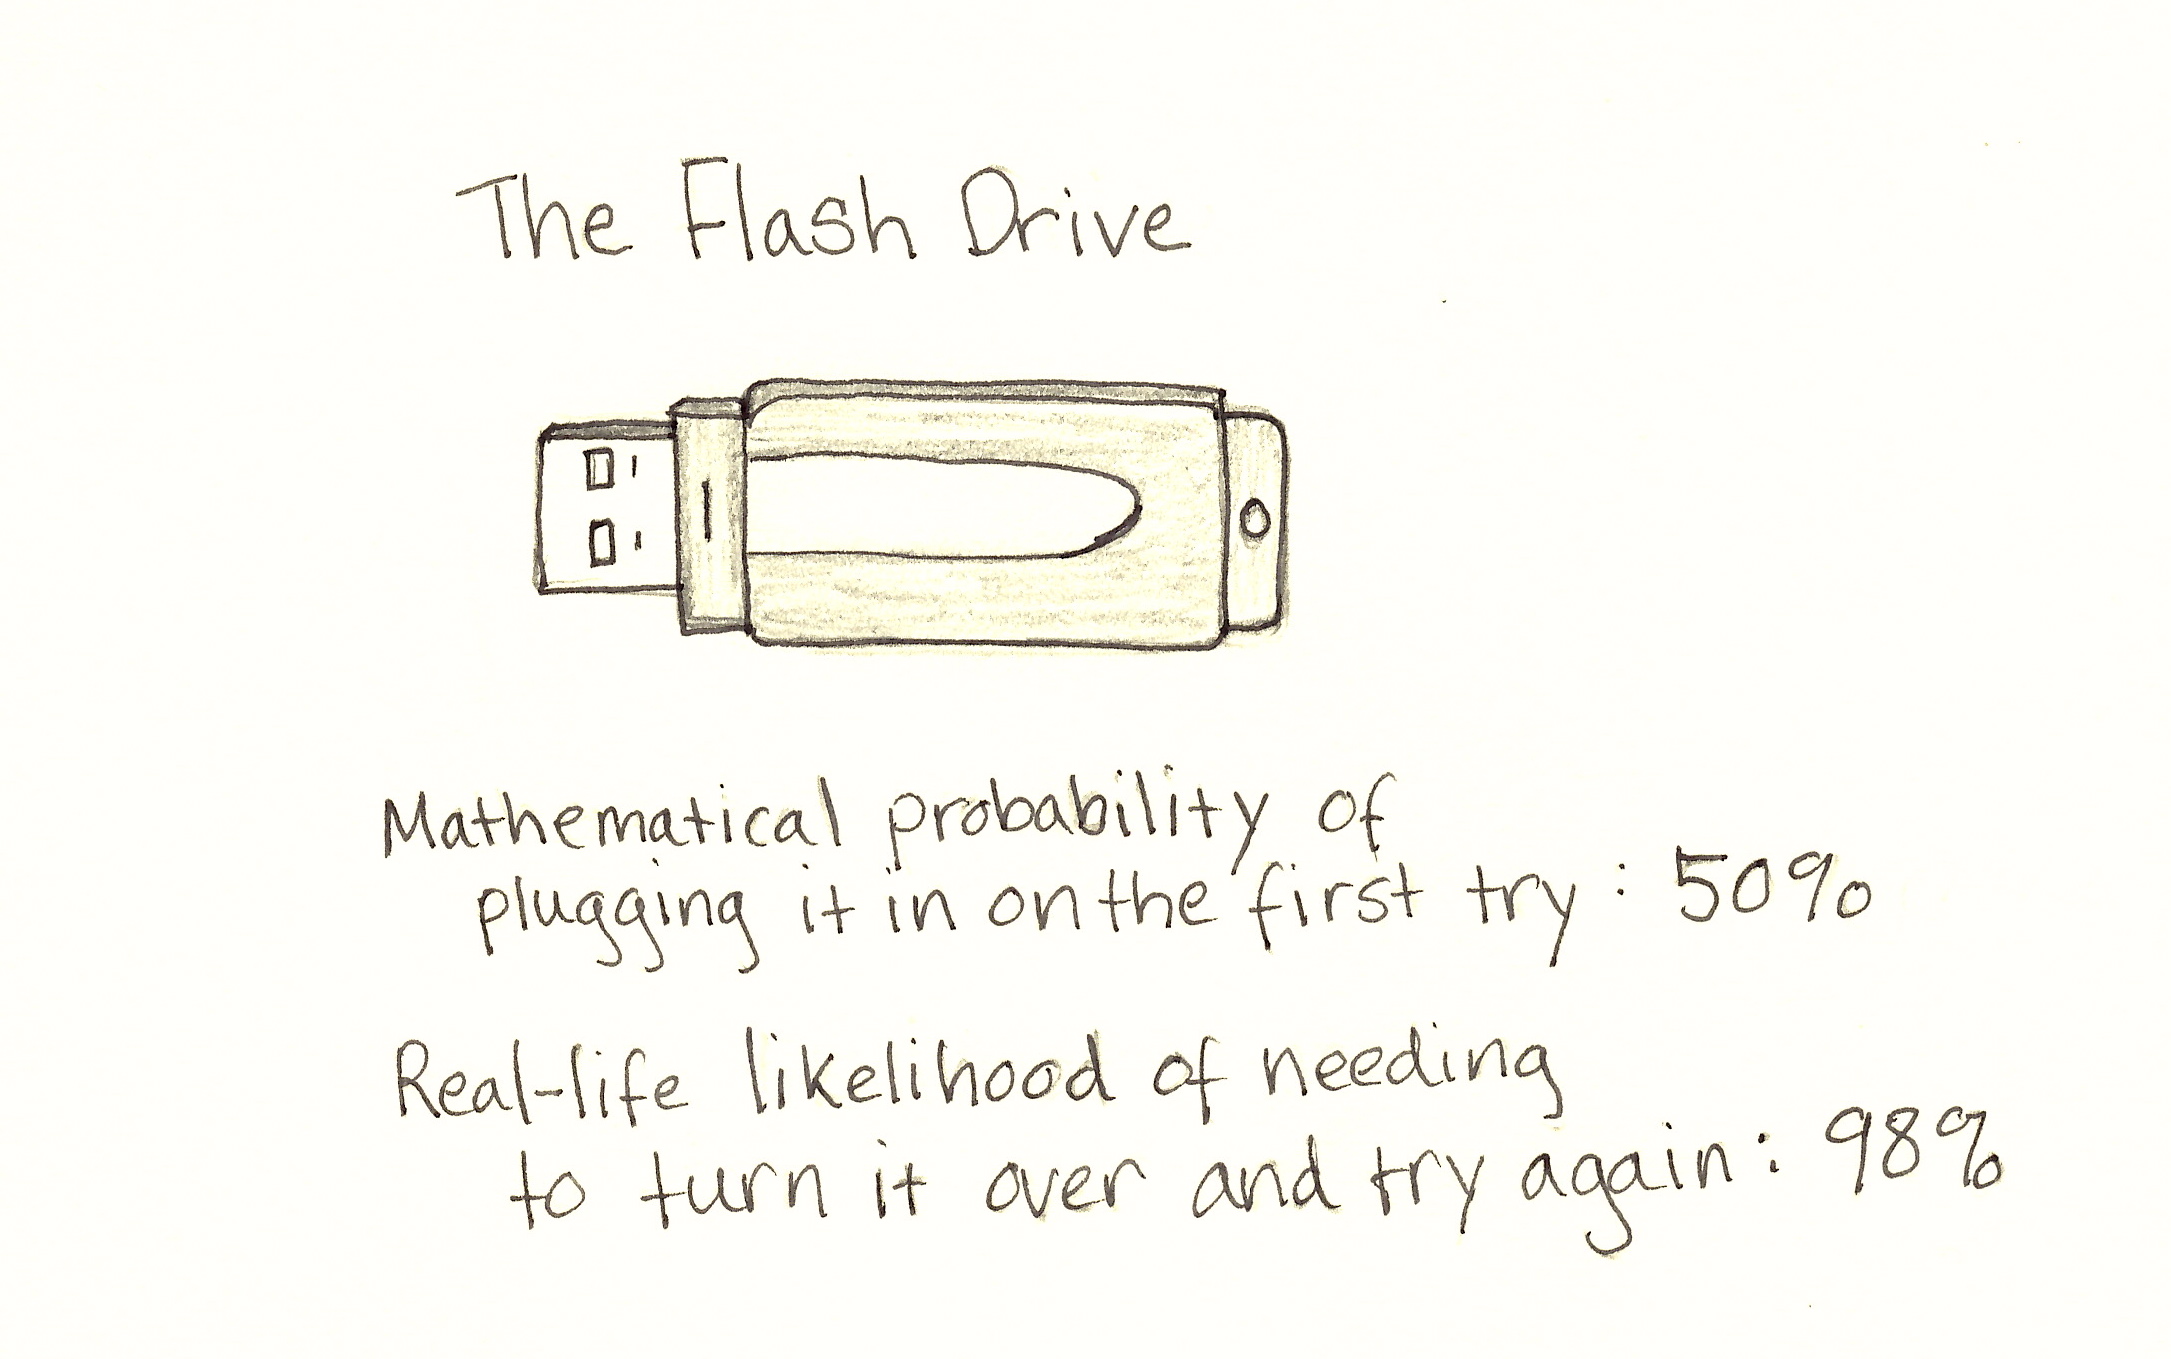 The Flash Drive
Mathematical probability of
plugging it in on the first try: 50%
Real-life likelihood of needing
to turn it over and try again: 98%